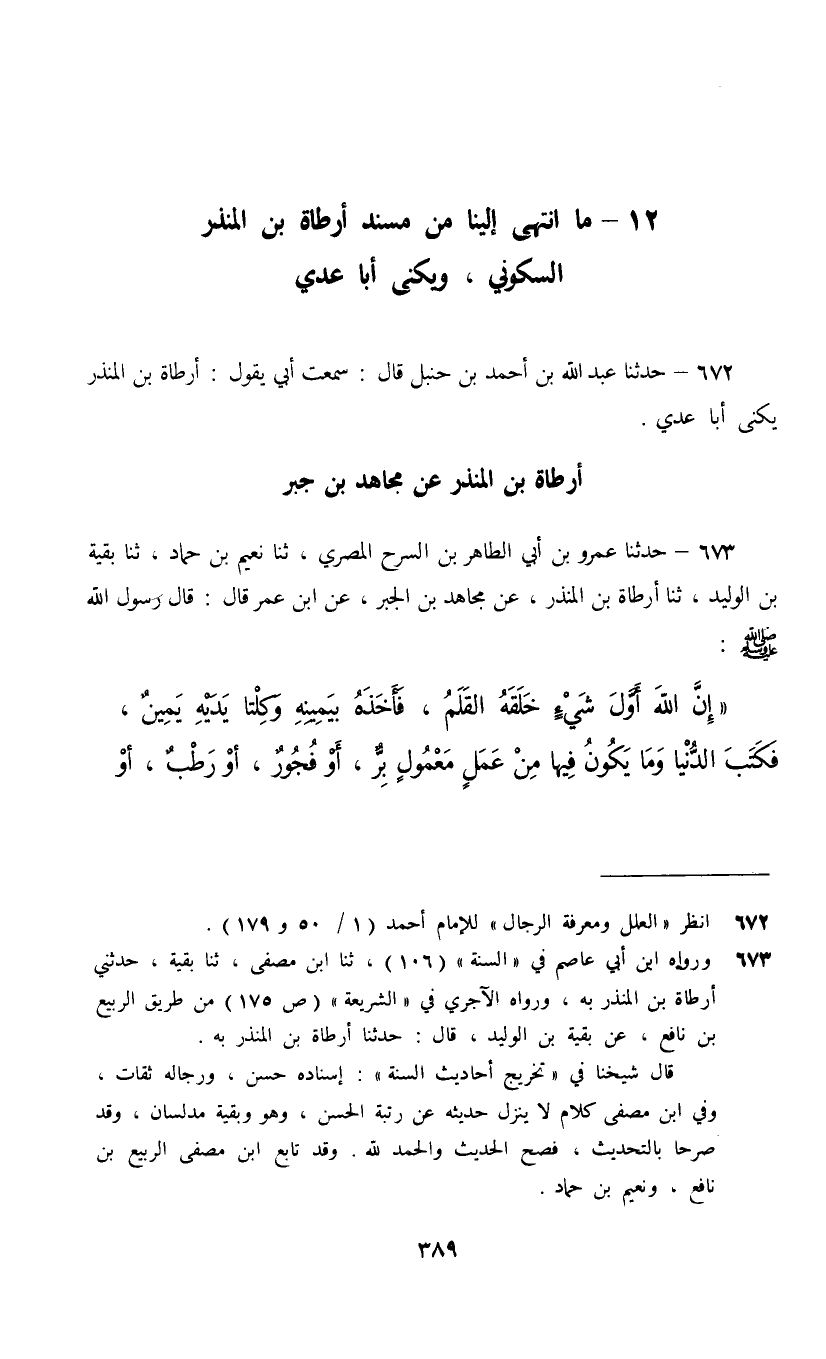 ١٢ – ما انتهى إلينا من مسند أرطاة بن المنذر
السكوني ، ويكنى أبا عدي
٦٧٢ – حدثنا عبد الله بن أحمد بن حنبل قال : سمعت أبي يقول : أرطاة بن المنذر
يكنى أبا عدي .
أرطاة بن المنذر عن مجاهد بن جبر
٦٧٣ – حدثنا عمرو بن أبي الطاهر بن السرح المصري ، ثنا نعيم بن حماد ، ثنا بقية
بن الوليد ، ثنا أرطاة بن المنذر ، عن مجاهد بن الجبر ، عن ابن عمر قال : قال رسول الله
ﷺ :
« إِنَّ اللهَ أَوَّلَ شَيْءٍ خَلَقَهُ القَلَمُ ، فَأَخَذَهُ بِيَمِينِهِ وَكِلْتا يَدَيْهِ يَمِينٌ ،
فَكَتَبَ الدُّنْيا وَمَا يَكُونُ فِيها مِنْ عَمَلٍ مَعْمُولٍ بِرٌّ ، أَوْ فُجُورٌ ، أوْ رَطْبٌ ، أوْ
٦٧٢ انظر « العلل ومعرفة الرجال » للإمام أحمد ( ١ / ٥٠ و ١٧٩ ) .
٦٧٣ ورواه ابن أبي عاصم في « السنة » ( ١٠٦ ) ، ثنا ابن مصفى ، ثنا بقية ، حدثني
أرطاة بن المنذر به ، ورواه الآجري في « الشريعة » ( ص ١٧٥ ) من طريق الربيع
بن نافع ، عن بقية بن الوليد ، قال : حدثنا أرطاة بن المنذر به .
قال شيخنا في « تخريج أحاديث السنة » : إسناده حسن ، ورجاله ثقات ،
وفي ابن مصفى كلام لا ينزل حديثه عن رتبة الحسن ، وهو وبقية مدلسان ، وقد
صرحا بالتحديث ، فصح الحديث والحمد لله . وقد تابع ابن مصفى الربيع بن
نافع ، ونعيم بن حماد .
٣٨٩